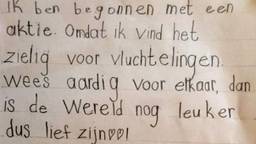 ik ben begonnen met een
aktie. Omdat ik vind het
zielig voor vluchtelingen.
wees aardig voor elkaar, dan
is de Wereld nog leuker
dus lief zijn♡♡!